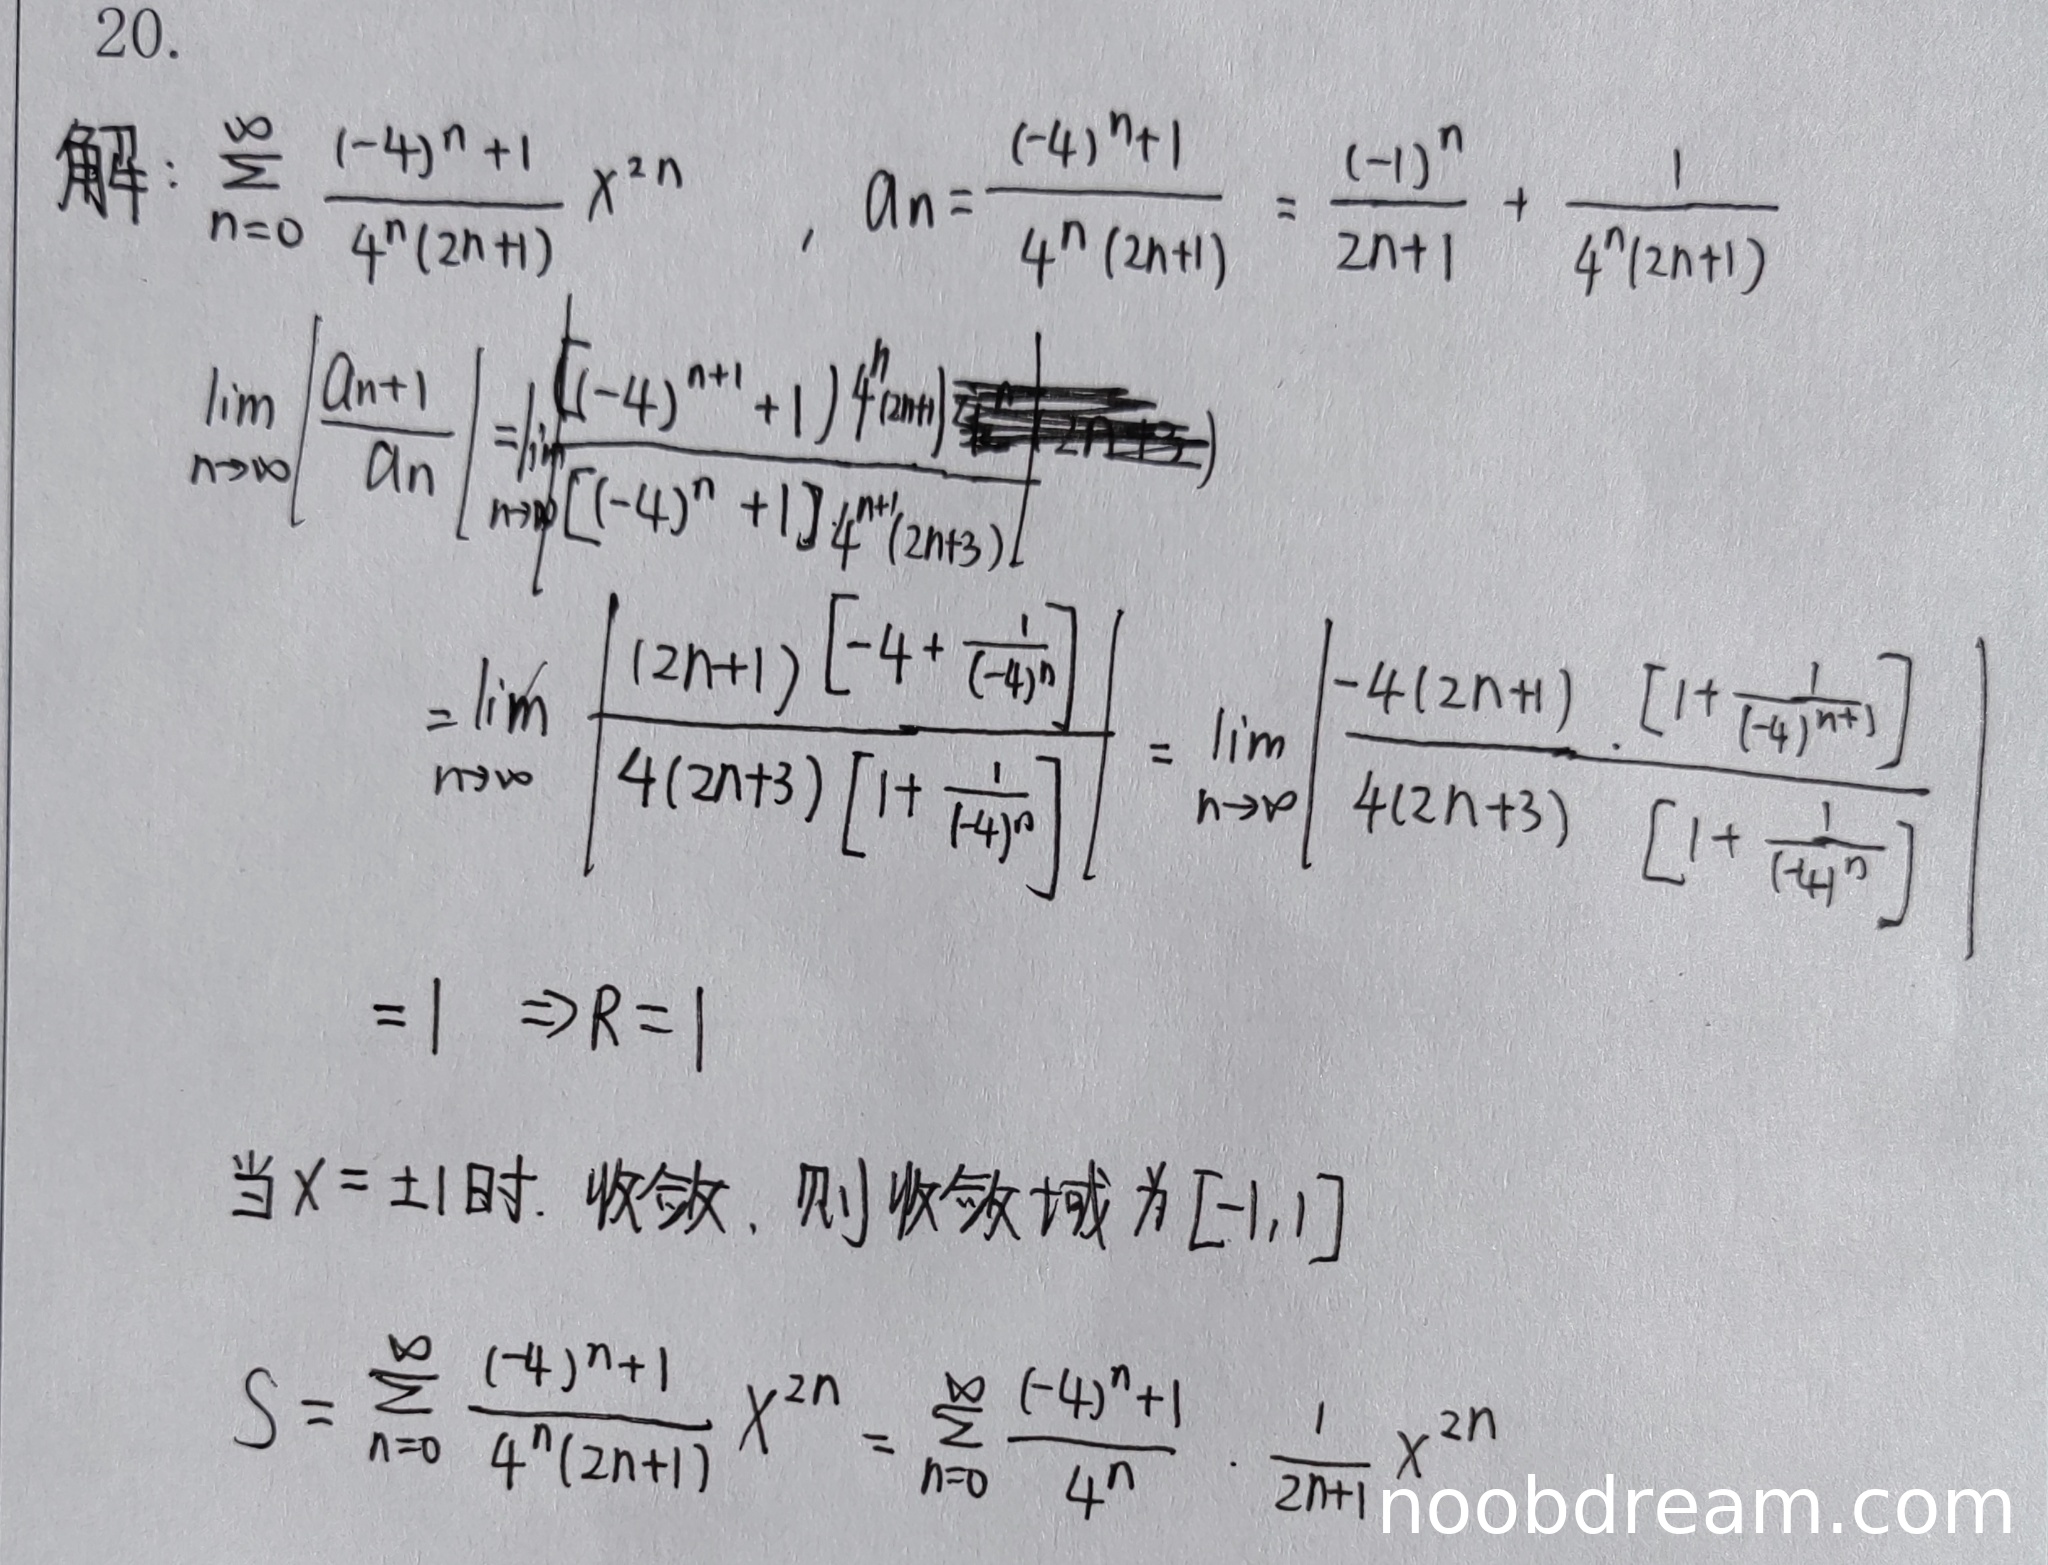 20.
解: ∑_{n=0}^{∞} \frac{(-4)^n+1}{4^n(2n+1)} x^{2n} , a_n = \frac{(-4)^n+1}{4^n(2n+1)} = \frac{(-1)^n}{2n+1} + \frac{1}{4^n(2n+1)}
lim_{n→∞} |\frac{a_{n+1}}{a_n}| = lim_{n→∞} |\frac{[(-4)^{n+1}+1)4^n(2n+1)}{[(-4)^n+1]·4^{n+1}(2n+3)}|
= lim_{n→∞} |\frac{(2n+1)[-4+\frac{1}{(-4)^n}]}{4(2n+3)[1+\frac{1}{(-4)^n}]}| = lim_{n→∞} |\frac{-4(2n+1)}{4(2n+3)} · \frac{[1+\frac{1}{(-4)^{n+1}}]}{[1+\frac{1}{(-4)^n}]}|
= 1 ⇒ R = 1
当 x = ±1 时. 收敛. 则收敛域为 [-1,1]
S = ∑_{n=0}^{∞} \frac{(-4)^n+1}{4^n(2n+1)} x^{2n} = ∑_{n=0}^{∞} \frac{(-4)^n+1}{4^n} · \frac{1}{2n+1} x^{2n}
noobdream.com